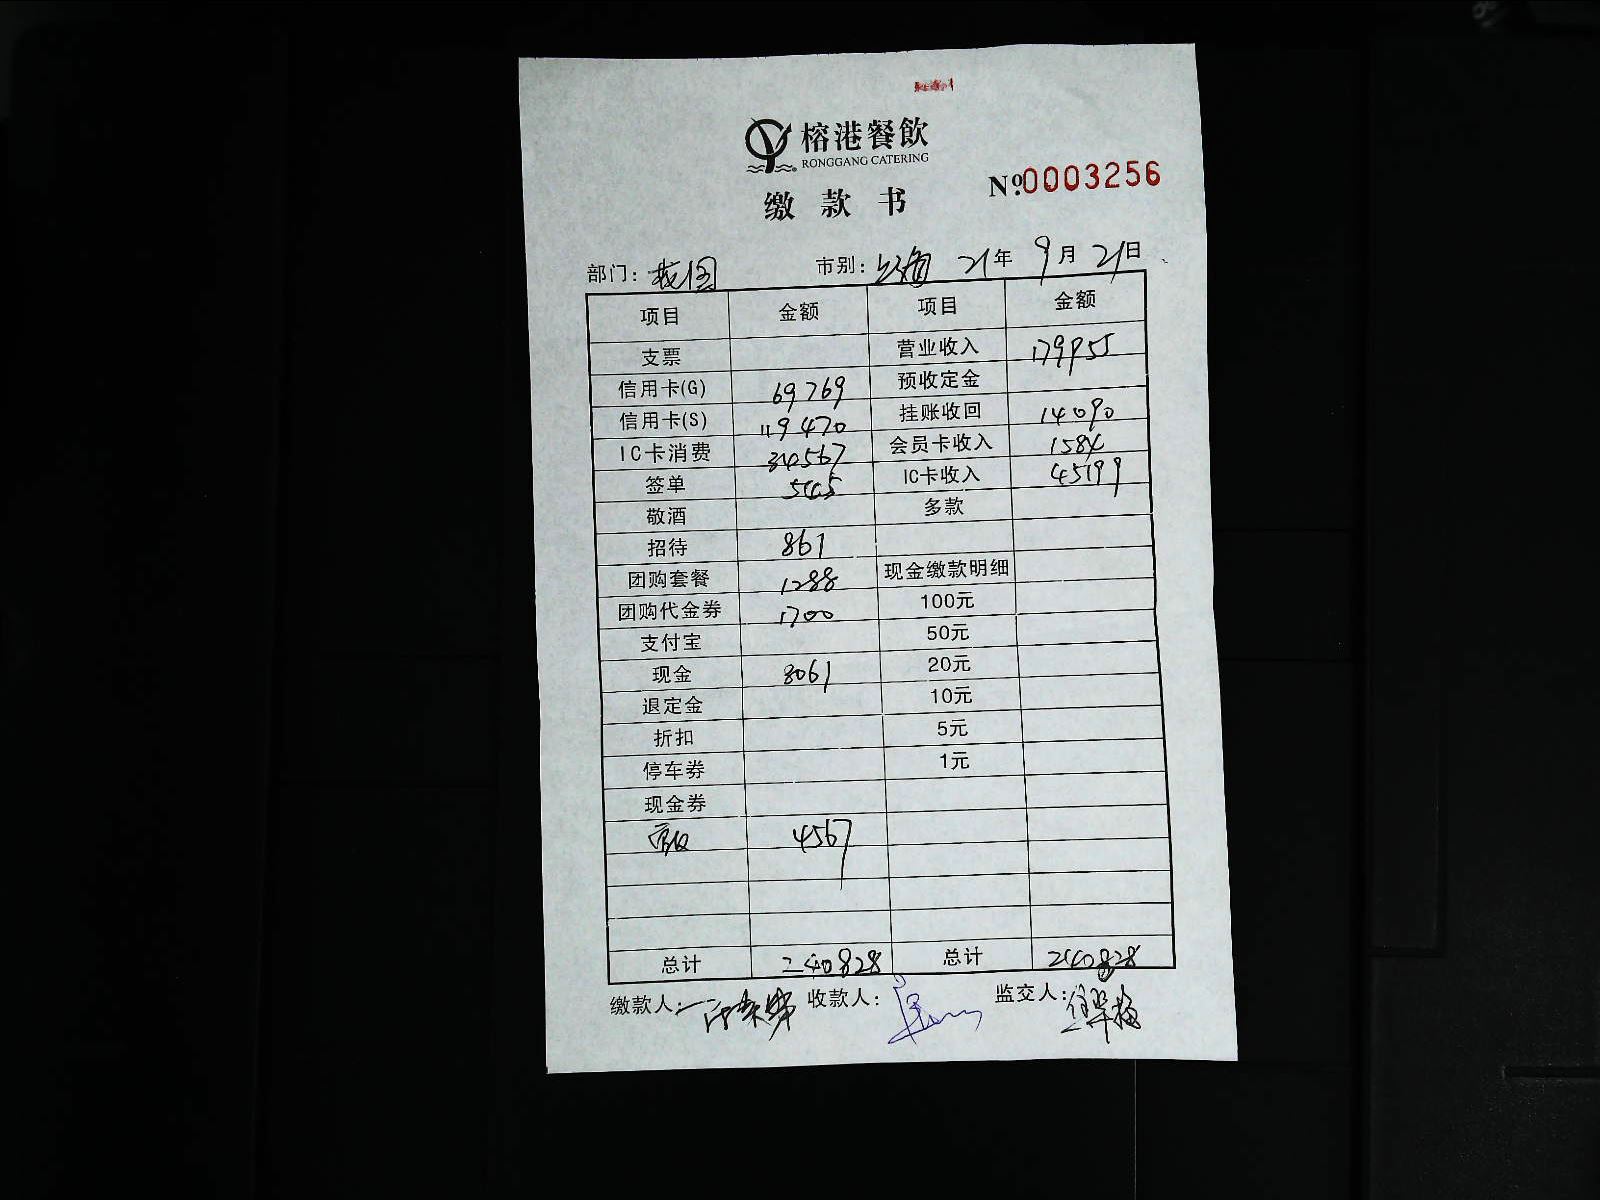 榕港餐飲
RONGGANG CATERING
缴款书
Nº.0003256
部门: 市别: 21年 9月 21日
项目 金额 项目 金额
支票 营业收入 179955
信用卡(G) 69769 预收定金
信用卡(S) 119470 挂账收回 14090
IC卡消费 34567 会员卡收入 1584
签单 545 IC卡收入 45199
敬酒 多款
招待 861
团购套餐 1288 现金缴款明细
团购代金券 1700 100元
支付宝 50元
现金 8061 20元
退定金 10元
折扣 5元
停车券 1元
现金券
4567
总计 240828 总计 240828
缴款人: 收款人: 监交人: